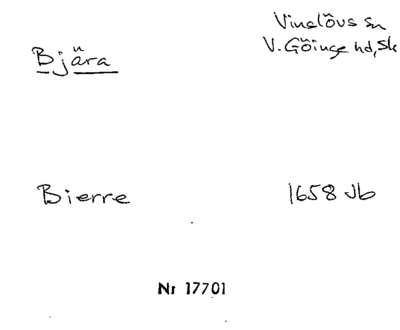 Vinslövs sn
Bjära
V. Göinge hd, Sk
Bierre
1658 Jb
Nr 17701